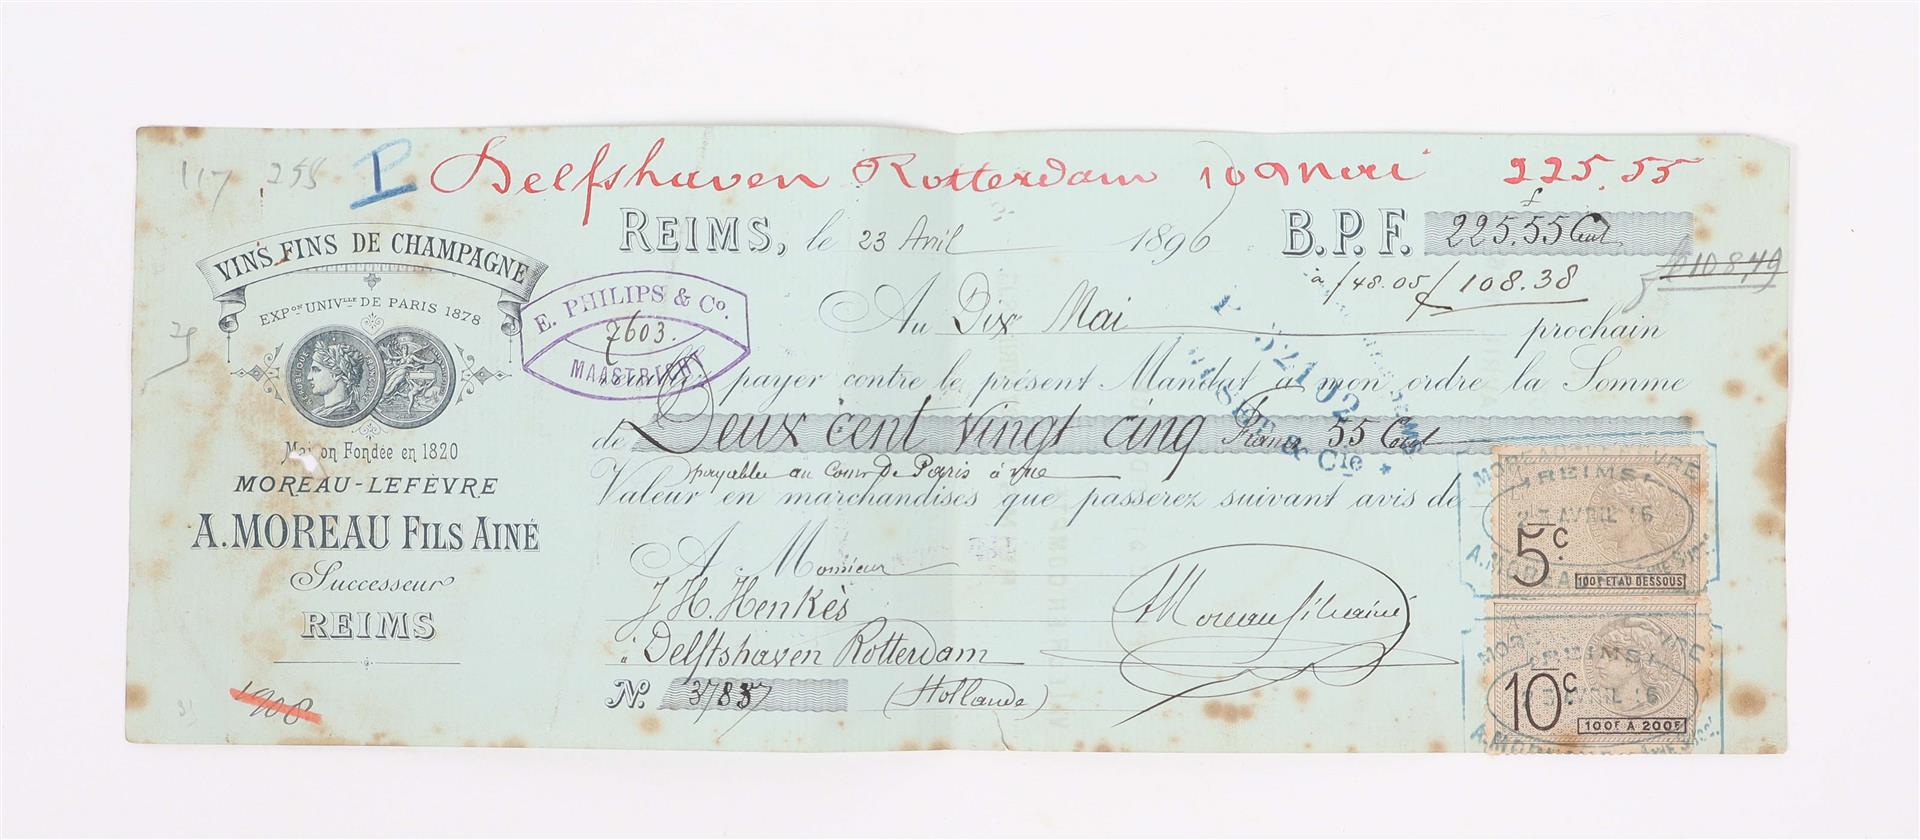 117 258
Delfshaven Rotterdam 10 Mei 225.55
VINS FINS DE CHAMPAGNE
EXPon UNIVlle DE PARIS 1878
Maison Fondée en 1820
MOREAU-LEFÈVRE
A. MOREAU FILS AINÉ
Successeur
REIMS
1908
REIMS, le 23 Avril 1896 B.P.F. 225.55 Cent
à f 48.05 f 108.38
Au Dix Mai prochain
E. PHILIPS & Co.
7603.
MAASTRICHT
payer contre le présent Mandat à mon ordre la Somme
de Deux cent vingt cinq Francs 55 Cent
payable au Cour de Paris à vue
Valeur en marchandises que passerez suivant avis de
52102
& Cie
A Monsieur
J H. Henkès
Delftshaven Rotterdam
(Hollande)
No 37837
Moreau fils ainé
MOREAU-LEFÈVRE
REIMS
23 AVRIL 96
5c.
100F ET AU DESSOUS
REIMS
AVRIL 96
10c.
100F A 200F